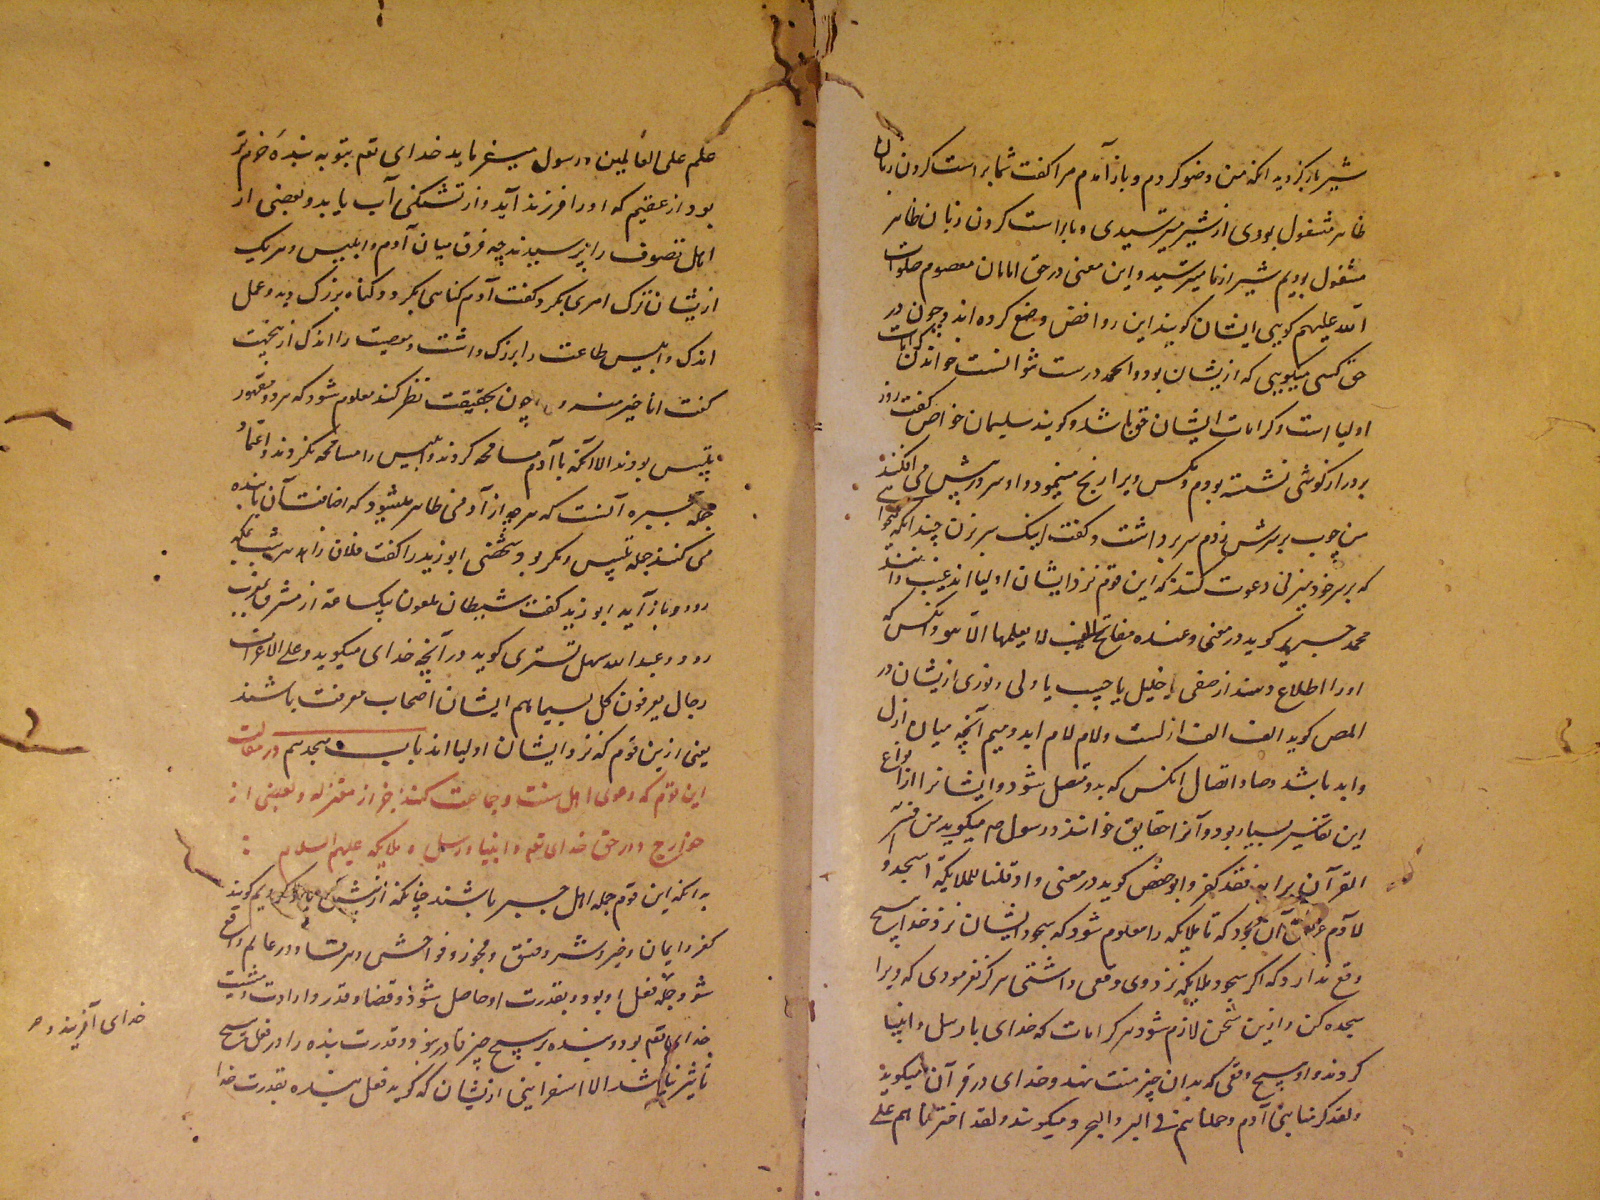 شیر باز کردید آنکه من وضو کردم و باز آمدم مرا گفت شما براست کردن زبان
ظاهر مشغول بودی از شیر میترسیدی و ما براست کردن زبان ظاهر
مشغول بودیم شیر از ما میترسید و این معنی در حق امامان معصوم صلوات
الله علیهم گویی ایشان گویند این روافض وضع کرده اند و چون در
حق کسی میگویی که ازیشان بود و الحمد درست نتوانست خواندن کرامات
اولیا است و کرامات ایشان حق باشد و گویند سلیمان خواص گفت روز
بر دراز گوشی نشسته بودم و مگس ویرا رنج مینمود و او سر در پیش می افکند
من چوب بر سرش زدم سر برداشت و گفت اینک بر سر زن چندانکه میخواهی
که بر سر خود میزنی دعوت کنند که این قوم نزد ایشان اولیا اند غیب دانند
محمد جریر گوید در معنی و عنده مفاتح الغیب لا یعلمها الا هو و انکس که
اورا اطلاع دهند از صفی یا خلیل یا حبیب یا ولی و نوری ازیشان در
المص گوید الف الف ازلست و لام لام ابد و میم آنچه میان ازل
و ابد باشد و صاد اتصال انکس که بدو متصل شود و ایشانرا از انواع
این تفاسیر بسیار بود و آنرا حقایق خوانند و رسول صم میگوید من فسر
القرآن برایه فقد کفر و ابو حفص گوید در معنی و اذ قلنا للملایکة اسجدوا
لآدم غرض آن بود که تا ملایکه را معلوم شود که سجود ایشان نزد خدا هیچ
وقع ندارد که اگر سجود ملایکه نزد وی وقعی داشتی هرگز نفرمودی که ویرا
سجده کن و ازین سخن لازم شود هر کرامات که خدای با رسل و انبیا
کردند و او هیچ وقعی که بدان چیز منت نهد و خدای در قرآن میگوید
ولقد کرمنا بنی آدم و حملناهم فی البر و البحر و میگوید ولقد اخترناهم علی
علم علی العالمین و رسول میفرماید خدای تعم بتوبه بندهٔ خرم تر
بود از عقیم که اورا فرزند آید و از تشنگی آب یابد و بعضی از
اهل تصوف را پرسیدند چه فرق میان آدم و ابلیس و هر یک
ازیشان ترک امری بکرد گفت آدم گناهی بکرد و گناه بزرگ دید و عمل
اندک و ابلیس طاعت را بزرگ داشت و معصیت را اندک ازین جهت
گفت انا خیر منه و چون بحقیقت نظر کنند معلوم شود که هر دو مقهور
تلبیس بودند الا آنکه با آدم مسامحه کردند و ابلیس را مسامحه نکردند و اعتقاد
جمله مجبره آنست که هر چه از آدمی ظاهر میشود که اضافت آن با بنده
می کنند جمله تلبیس و مکر بود و شخصی ابو زید را گفت فلان زاهد هر شب بمکه
رود و باز آید ابو زید گفت شیطان ملعون بیکساعت از مشرق بمغرب
رود و عبد الله سهل تستری گوید در آنچه خدای میگوید و علی الاعراف
رجال یعرفون کل بسیماهم ایشان اصحاب معرفت باشند
یعنی ازین قوم که نزد ایشان اولیا اند باب هجدهم در مقالت
این قوم که دعوی اهل سنت و جماعت کنند جز از معتزله و بعضی از
خوارج و در حق خدای تعم و انبیا و رسل و ملایکه علیهم السلام
بدانکه این قوم جمله اهل جبر باشند چنانکه از پیش یاد کردیم گویند
کفر و ایمان و خیر و شر و فسق و فجور و فواحش و هر فساد که در عالم واقع
شود جمله فعل او بود و بقدرت او حاصل شود و قضا و قدر و ارادت و مشیت
خدای تعم بود و بنده بر هیچ چیز قادر نبود و قدرت بنده را در فعل هیچ
تاثیر نباشد الا اسفراینی ازیشان که گوید فعل بنده بقدرت خدا
خدای آفریند و